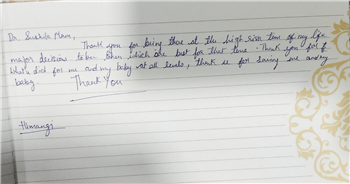 Dr. Sushila Mam,
Thank you for being there at the high risk time of my life
major decision taken then which are best for that time. Thank you for
what u did for me and my baby at all levels, thank u for saving me and my
baby. Thank You
Himangi